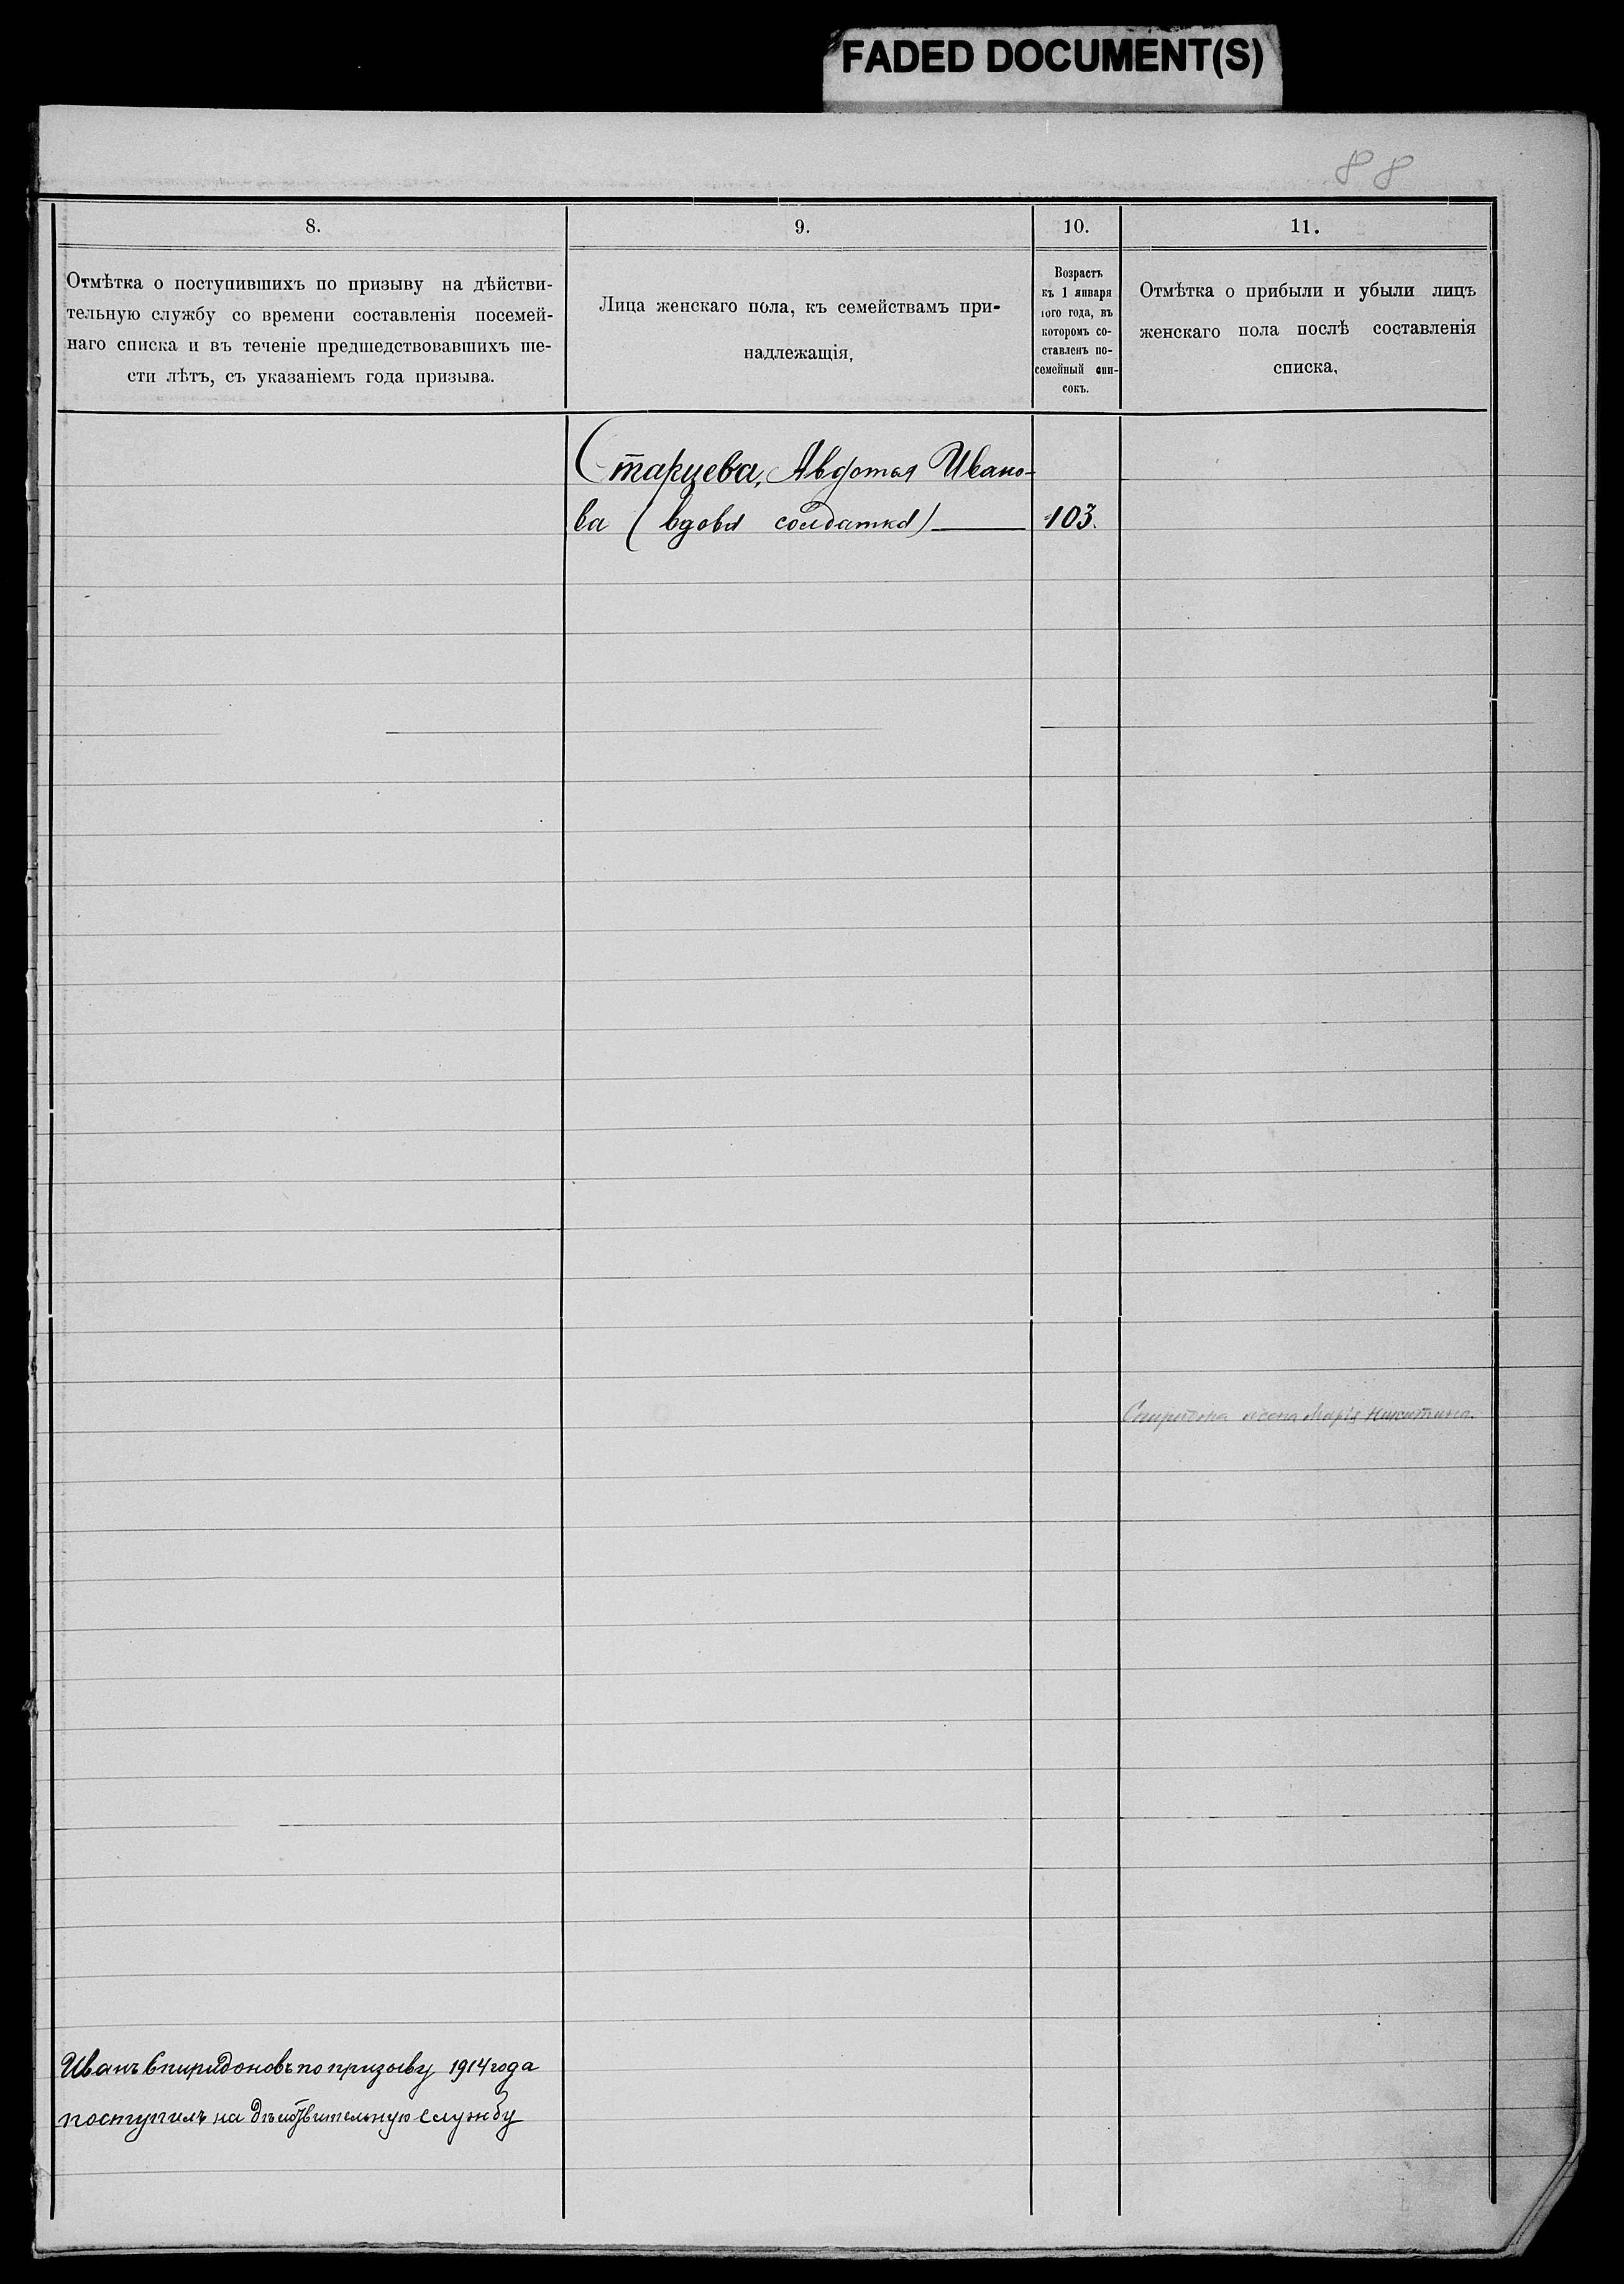 FADED DOCUMENT(S)
88
8.
9.
10.
11.
Отмѣтка о поступившихъ по призыву на дѣйстви-
тельную службу со времени составленія посемей-
наго списка и въ теченіе предшедствовавшихъ ше-
сти лѣтъ, съ указаніемъ года призыва.
Лица женскаго пола, къ семействамъ при-
надлежащія,
Возрастъ
къ 1 января
того года, въ
которомъ со-
ставленъ по-
семейный спи-
сокъ.
Отмѣтка о прибыли и убыли лицъ
женскаго пола послѣ составленія
списка,
Старцева, Авдотья Ивано-
ва (вдова солдатка)
103.
жена Марія Никитина.
Иванъ Спиридоновъ по призыву 1914 года
поступилъ на дѣйствительную службу